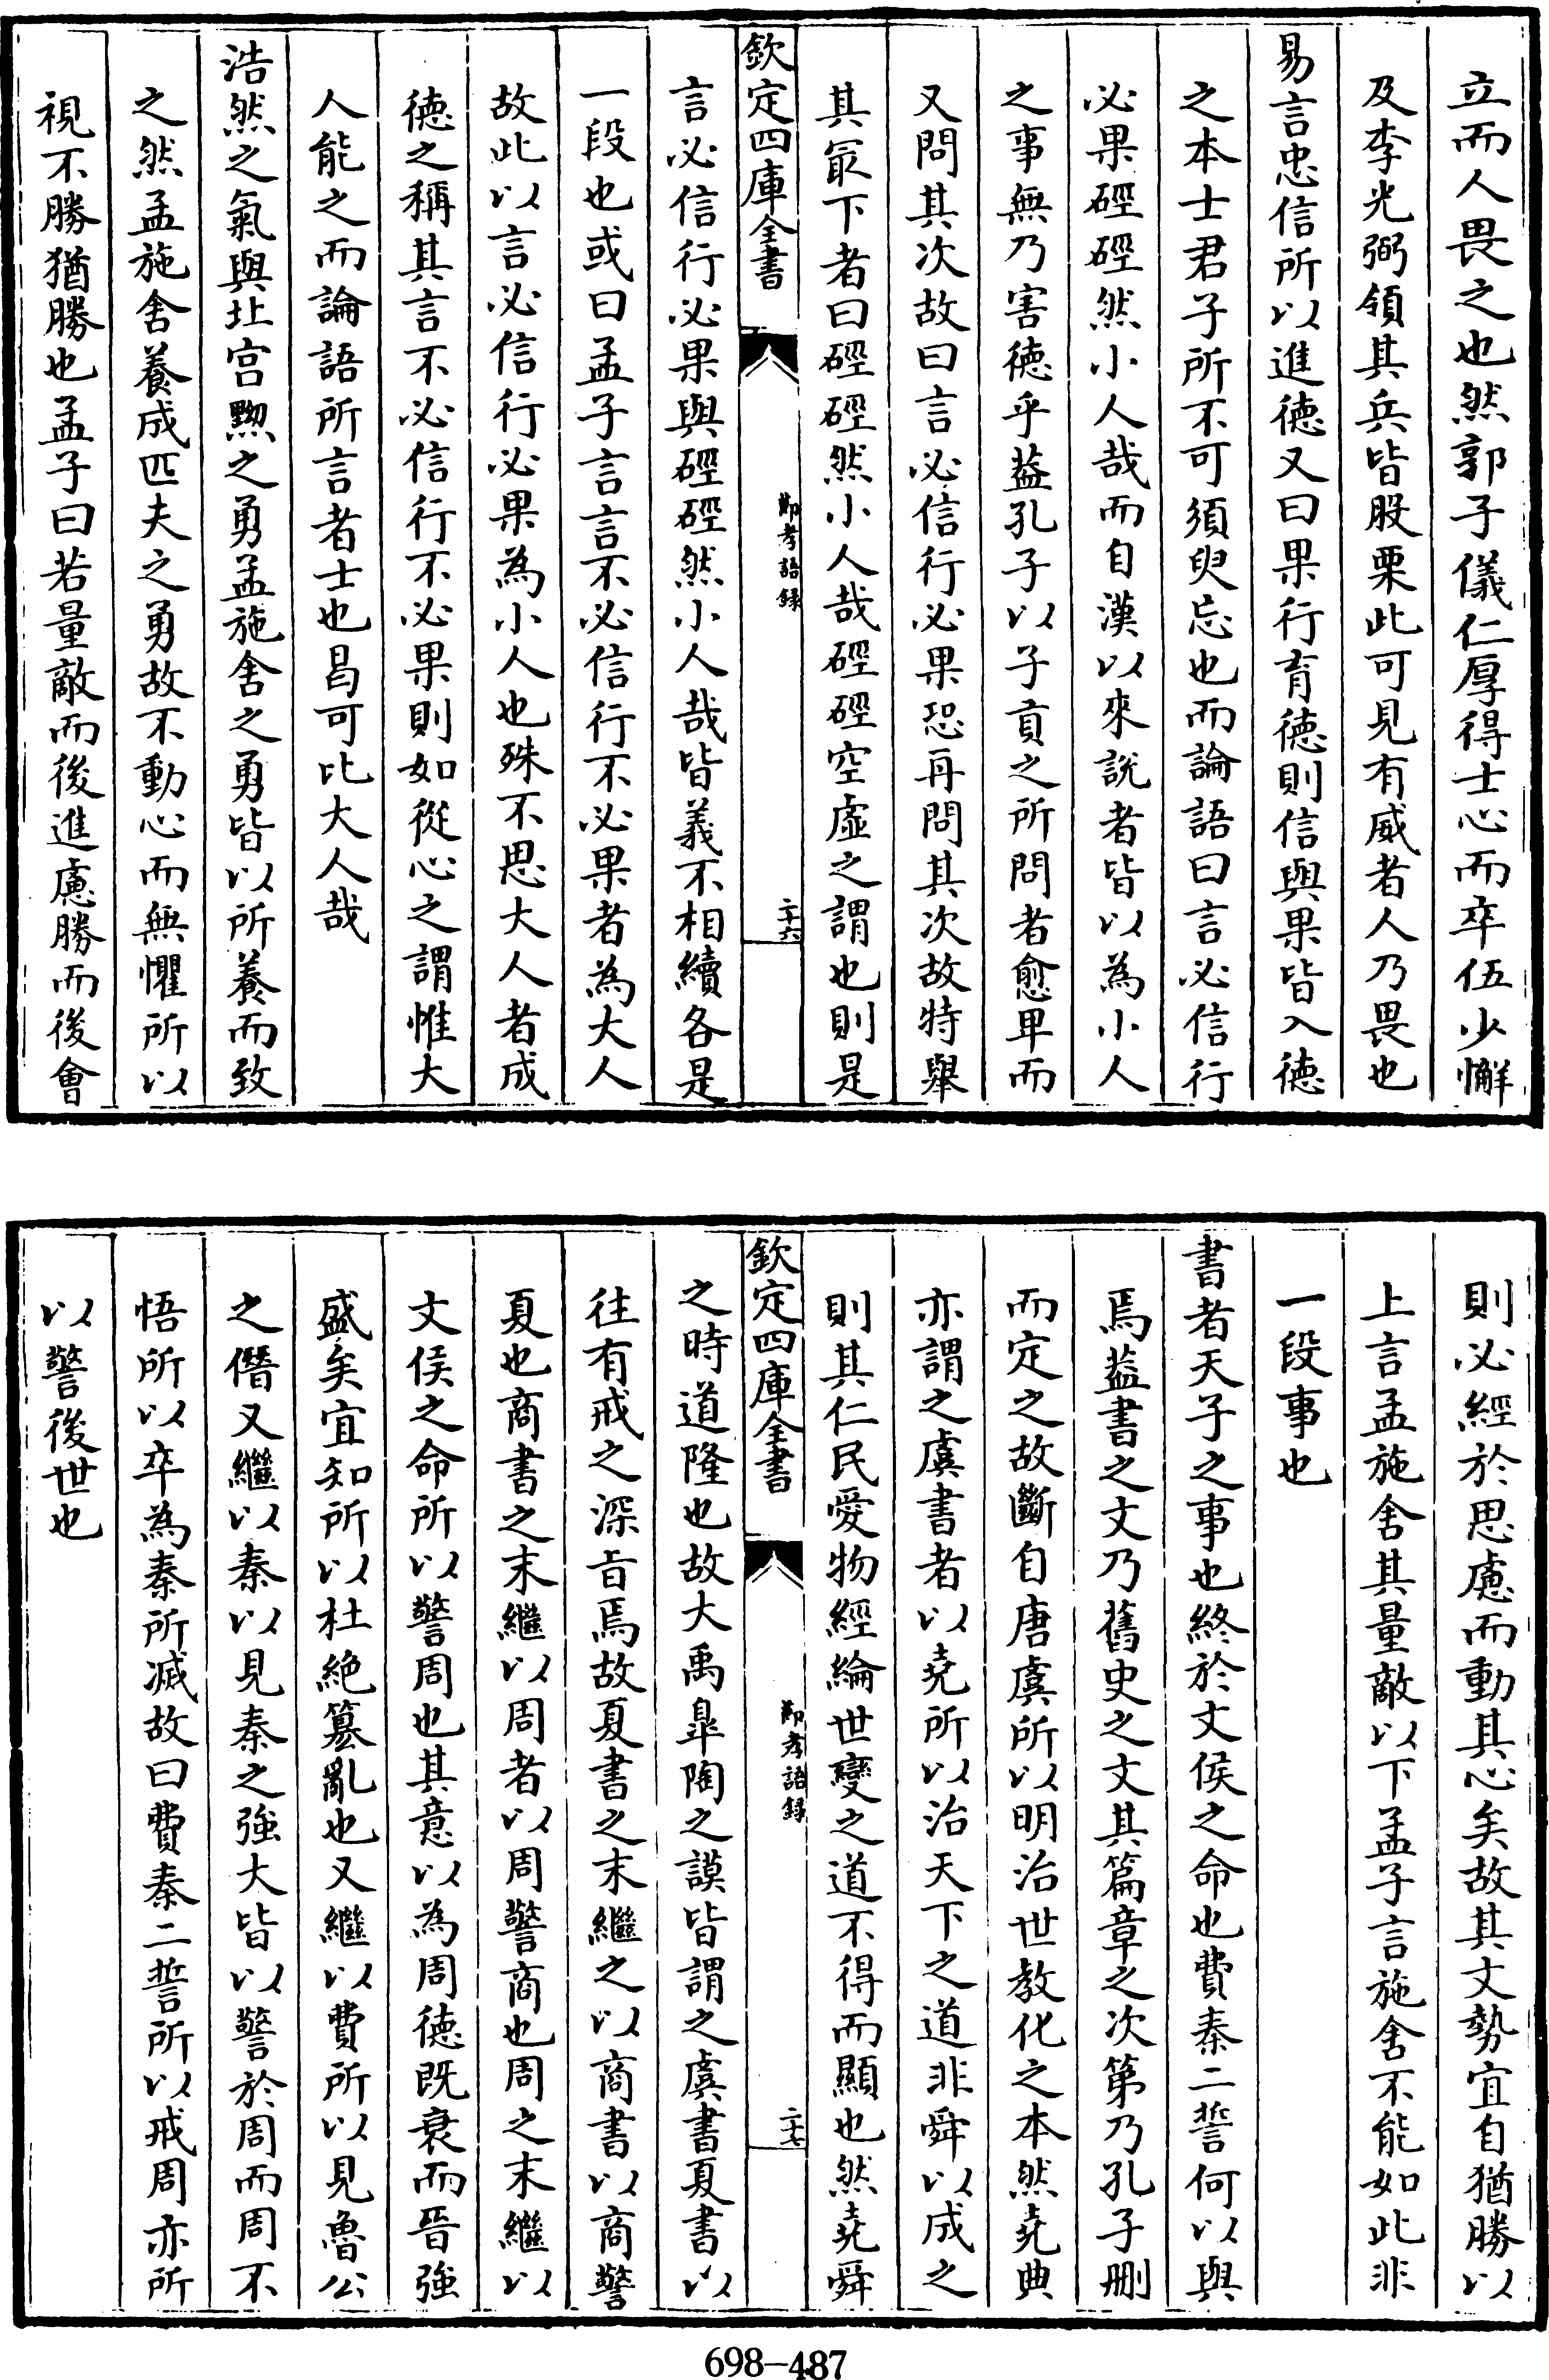 立而人畏之也然郭子儀仁厚得士心而卒伍少懈
及李光弼領其兵皆股栗此可見有威者人乃畏也
易言忠信所以進德又曰果行育德則信與果皆入德
之本士君子所不可須臾忘也而論語曰言必信行
必果硜硜然小人哉而自漢以來説者皆以為小人
之事無乃害德乎葢孔子以子貢之所問者愈卑而
又問其次故曰言必信行必果恐再問其次故特舉
其冣下者曰硜硜然小人哉硜硜空虛之謂也則是
欽定四庫全書
節孝語録
二十六
言必信行必果與硜硜然小人哉皆義不相續各是
一段也或曰孟子言言不必信行不必果者為大人
故此以言必信行必果為小人也殊不思大人者成
德之稱其言不必信行不必果則如從心之謂惟大
人能之而論語所言者士也曷可比大人哉
浩然之氣與北宫黝之勇孟施舍之勇皆以所養而致
之然孟施舍養成匹夫之勇故不動心而無懼所以
視不勝猶勝也孟子曰若量敵而後進慮勝而後會
則必經於思慮而動其心矣故其文勢宜自猶勝以
上言孟施舍其量敵以下孟子言施舍不能如此非
一段事也
書者天子之事也終於文侯之命也費秦二誓何以與
焉葢書之文乃舊史之文其篇章之次第乃孔子刪
而定之故斷自唐虞所以明治世教化之本然堯典
亦謂之虞書者以堯所以治天下之道非舜以成之
則其仁民愛物經綸世變之道不得而顯也然堯舜
欽定四庫全書
節孝語録
二十七
之時道隆也故大禹臯陶之謨皆謂之虞書夏書以
往有戒之深㫖焉故夏書之末繼之以商書以商警
夏也商書之末繼以周者以周警商也周之末繼以
文侯之命所以警周也其意以為周德既衰而晉強
盛矣宜知所以杜絶簒亂也又繼以費所以見魯公
之僭又繼以秦以見秦之強大皆以警於周而周不
悟所以卒為秦所滅故曰費秦二誓所以戒周亦所
以警後世也
698-487